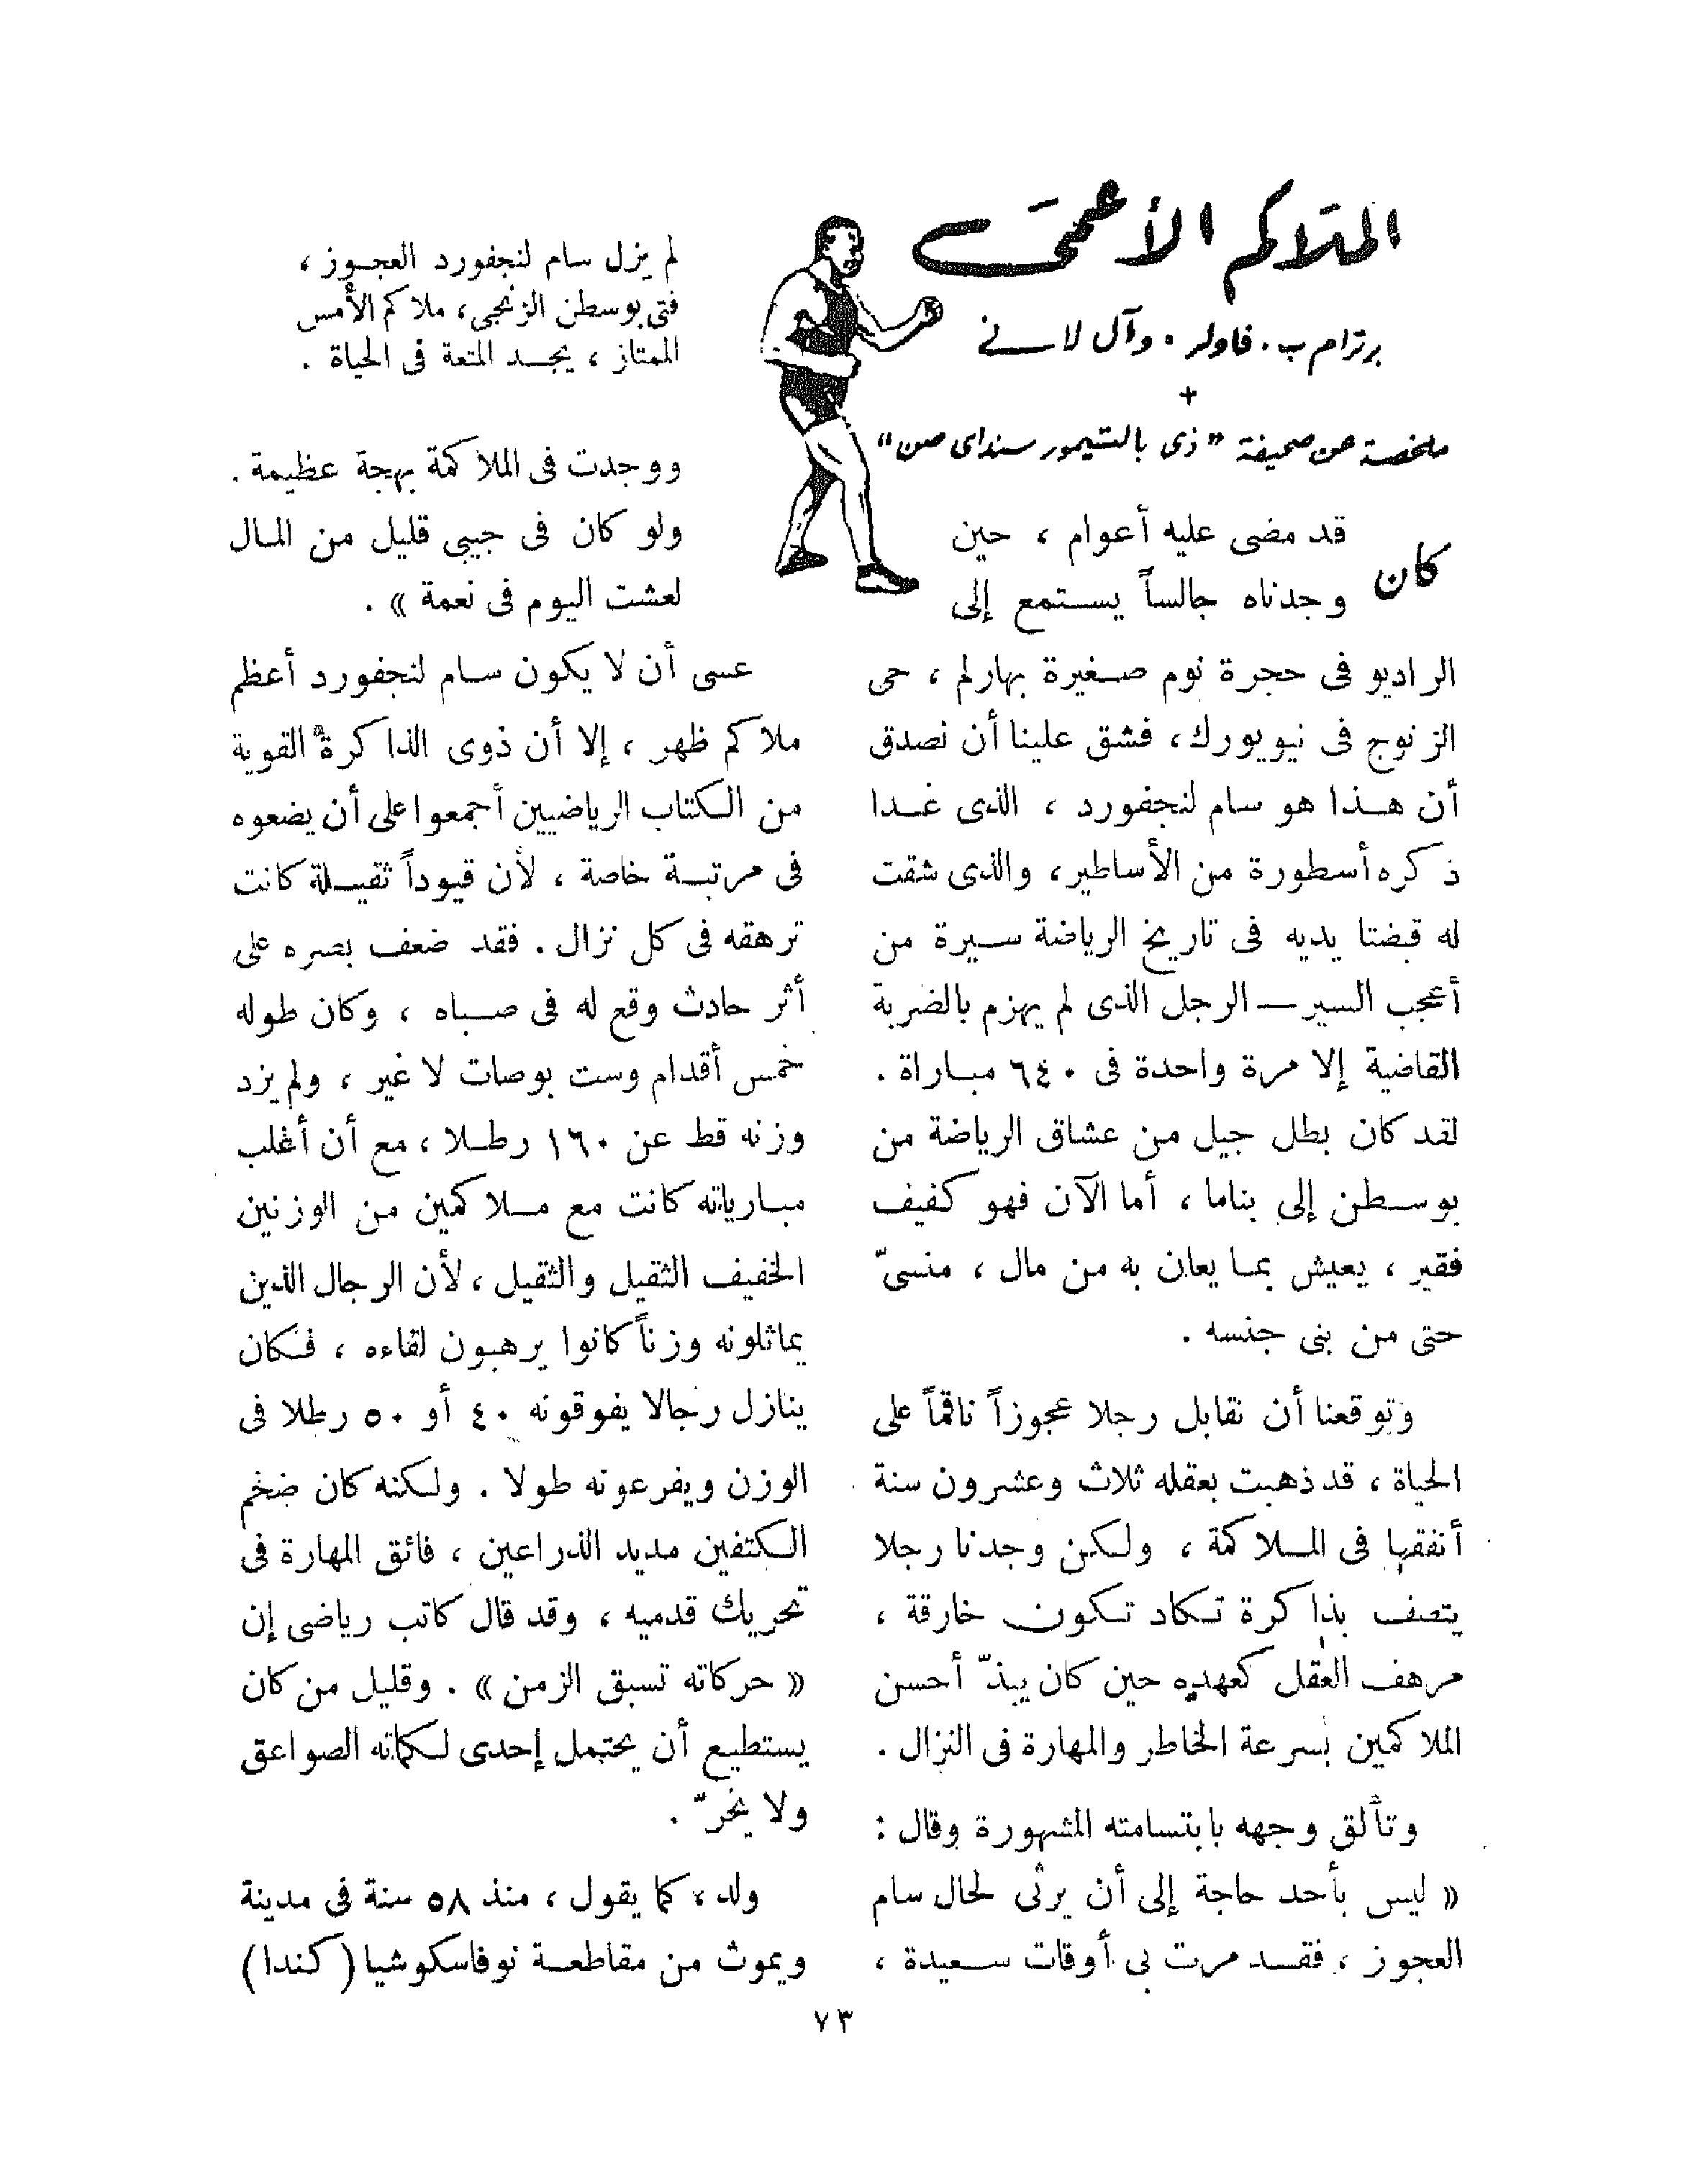 الملاكم الأعمى
برترام ب. فاولر. وآل لاسنى
+
ملخصة عن صحيفة "ذى بالتيمور سنداى صن"
لم يزل سام لنجفورد العجوز ،
فتى بوسطن الزنجى، ملاكم الأمس
الممتاز ، يجد المتعة فى الحياة .
كان قد مضى عليه أعوام ، حين
وجدناه جالساً يستمع إلى
الراديو فى حجرة نوم صغيرة بهارلم ، حى
الزنوج فى نيويورك، فشق علينا أن نصدق
أن هذا هو سام لنجفورد ، الذى غدا
ذكره أسطورة من الأساطير، والذى شقت
له قبضتا يديه فى تاريخ الرياضة سيرة من
أعجب السير — الرجل الذى لم يهزم بالضربة
القاضية إلا مرة واحدة فى ٦٤٠ مباراة .
لقد كان بطل جيل من عشاق الرياضة من
بوسطن إلى بناما ، أما الآن فهو كفيف
فقير ، يعيش بما يعان به من مال ، منسىّ
حتى من بنى جنسه .
وتوقعنا أن نقابل رجلا عجوزاً ناقماً على
الحياة ، قد ذهبت بعقله ثلاث وعشرون سنة
أنفقها فى الملاكمة ، ولكن وجدنا رجلا
يتصف بذاكرة تكاد تكون خارقة ،
مرهف العقل كعهده حين كان يبذّ أحسن
الملاكمين بسرعة الخاطر والمهارة فى النزال .
وتألق وجهه بابتسامته المشهورة وقال :
« ليس بأحد حاجة إلى أن يرثى لحال سام
العجوز ، فقد مرت بى أوقات سعيدة ،
ووجدت فى الملاكمة بهجة عظيمة .
ولو كان فى جيبى قليل من المال
لعشت اليوم فى نعمة » .
عسى أن لا يكون سام لنجفورد أعظم
ملاكم ظهر ، إلا أن ذوى الذاكرة القوية
من الكتاب الرياضيين أجمعوا على أن يضعوه
فى مرتبة خاصة ، لأن قيوداً ثقيلة كانت
ترهقه فى كل نزال . فقد ضعف بصره على
أثر حادث وقع له فى صباه ، وكان طوله
خمس أقدام وست بوصات لا غير ، ولم يزد
وزنه قط عن ١٦٠ رطلا ، مع أن أغلب
مبارياته كانت مع ملاكمين من الوزنين
الخفيف الثقيل والثقيل ، لأن الرجال الذين
يماثلونه وزناً كانوا يرهبون لقاءه ، فكان
ينازل رجالا يفوقونه ٤٠ أو ٥٠ رطلا فى
الوزن ويفرعونه طولا . ولكنه كان ضخم
الكتفين مديد الذراعين ، فائق المهارة فى
تحريك قدميه ، وقد قال كاتب رياضى إن
« حركاته تسبق الزمن » . وقليل من كان
يستطيع أن يحتمل إحدى لكماته الصواعق
ولا يخرّ .
ولد ، كما يقول ، منذ ٥٨ سنة فى مدينة
ويموث من مقاطعة نوفاسكوشيا (كندا)
٧٣